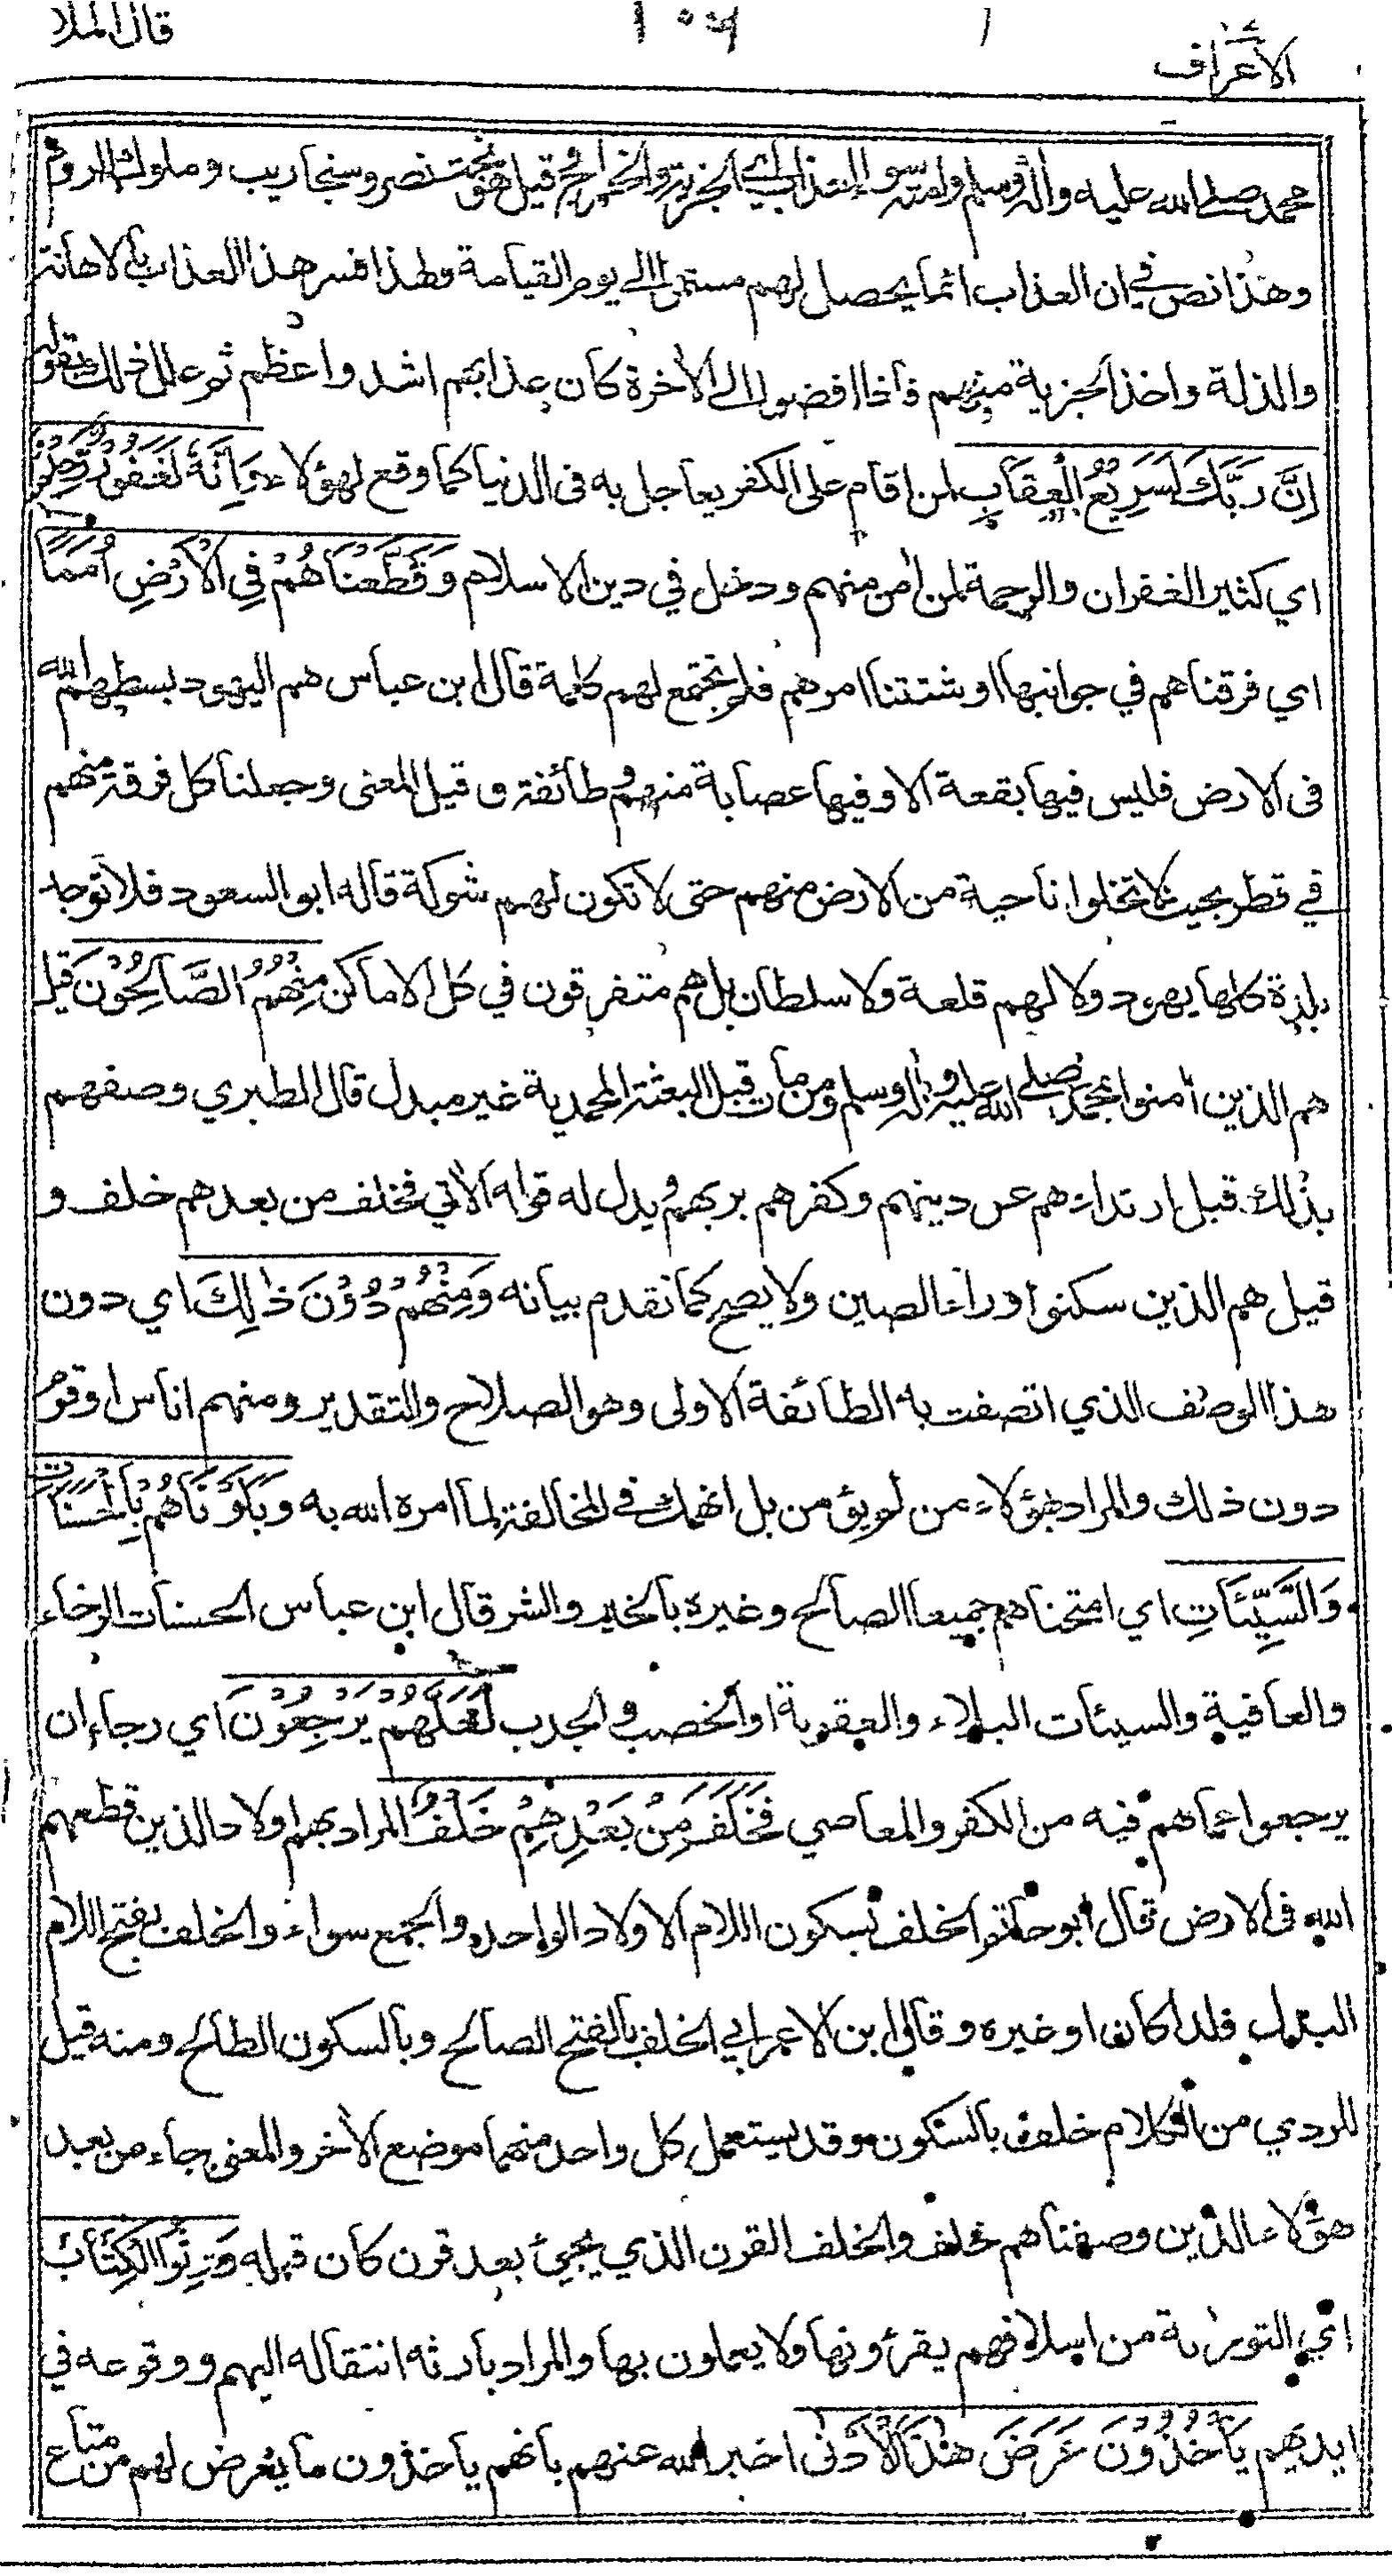 قال الملا
١٥٦
الأعراف
محمد صلى الله عليه وآله وسلم وامته سوء العذاب أي الجزية والخراج وقيل هو بخت نصر وسنجاريب وملوك الروم
وهذا نص في ان العذاب انما يحصل لهم مستمرا الى يوم القيامة ولهذا فسر هذا العذاب بالاهانة
والذلة واخذ الجزية منهم فاذا افضوا الى الأخرة كان عذابهم اشد واعظم ثم علل ذلك بقوله
اِنَّ رَبَّكَ لَسَرِيْعُ الْعِقَابِ لمن اقام على الكفر يعاجل به فى الدنيا كما وقع لهؤلاء وَاِنَّهُ لَغَفُوْرٌ رَّحِيْمٌ
اي كثير الغفران والرحمة لمن أمن منهم ودخل في دين الاسلام وَقَطَّعْنَاهُمْ فِي الْاَرْضِ اُمَمًا
اي فرقناهم في جوانبها او شتتنا امرهم فلم تجتمع لهم كلمة قال ابن عباس هم اليهود بسطهم الله
فى الارض فليس فيها بقعة الا وفيها عصابة منهم وطائفة وقيل المعنى وجعلنا كل فرقة منهم
في قطر بحيث لا تخلوا ناحية من الارض منهم حتى لا تكون لهم شوكة قاله ابو السعود فلا توجد
بلدة كلها يهود ولا لهم قلعة ولا سلطان بل هم متفرقون في كل الاماكن مِنْهُمُ الصَّالِحُوْنَ قيل
هم الذين أمنوا بمحمد صلى الله عليه وآله وسلم ومن مات قبل البعثة المحمدية غير مبدل قال الطبري وصفهم
بذلك قبل ارتدادهم عن دينهم وكفرهم بربهم ويدل له قوله الأتي فخلف من بعدهم خلف و
قيل هم الذين سكنوا وراء الصين ولا يصح كما تقدم بيانه وَمِنْهُمْ دُوْنَ ذٰلِكَ اي دون
هذا الوصف الذي اتصفت به الطائفة الاولى وهو الصلاح والتقدير ومنهم اناس او قوم
دون ذلك والمراد بهؤلاء من لم يؤمن بل انهمك في المخالفة لما امره الله به وَبَلَوْنَاهُمْ بِالْحَسَنَاتِ
وَالسَّيِّئَاتِ اي امتحناهم جميعا الصالح وغيره بالخير والشر قال ابن عباس الحسنات الرخاء
والعافية والسيئات البلاء والعقوبة او الخصب والجدب لَعَلَّهُمْ يَرْجِعُوْنَ اي رجاء ان
يرجعوا عما هم فيه من الكفر والمعاصي فَخَلَفَ مِنْ بَعْدِهِمْ خَلْفٌ المراد بهم اولاد الذين قطعهم
الله فى الارض قال ابو حاتم الخلف بسكون اللام الاولاد الواحد والجمع سواء والخلف بفتح اللام
البدل ولدا كان او غيره وقال ابن الاعرابي الخلف بالفتح الصالح وبالسكون الطالح ومنه قيل
للردي من الكلام خلف بالسكون وقد يستعمل كل واحد منهما موضع الأخر والمعنى جاء من بعد
هؤلاء الذين وصفناهم خلف والخلف القرن الذي يجيئ بعد قرن كان قبله وَرِثُوا الْكِتَابَ
اي التورٰىة من اسلافهم يقرأونها ولا يعملون بها والمراد بارثه انتقاله اليهم ووقوعه في
ايديهم يَأْخُذُوْنَ عَرَضَ هٰذَا الْاَدْنٰى اخبر الله عنهم بانهم ياخذون ما يعرض لهم من متاع